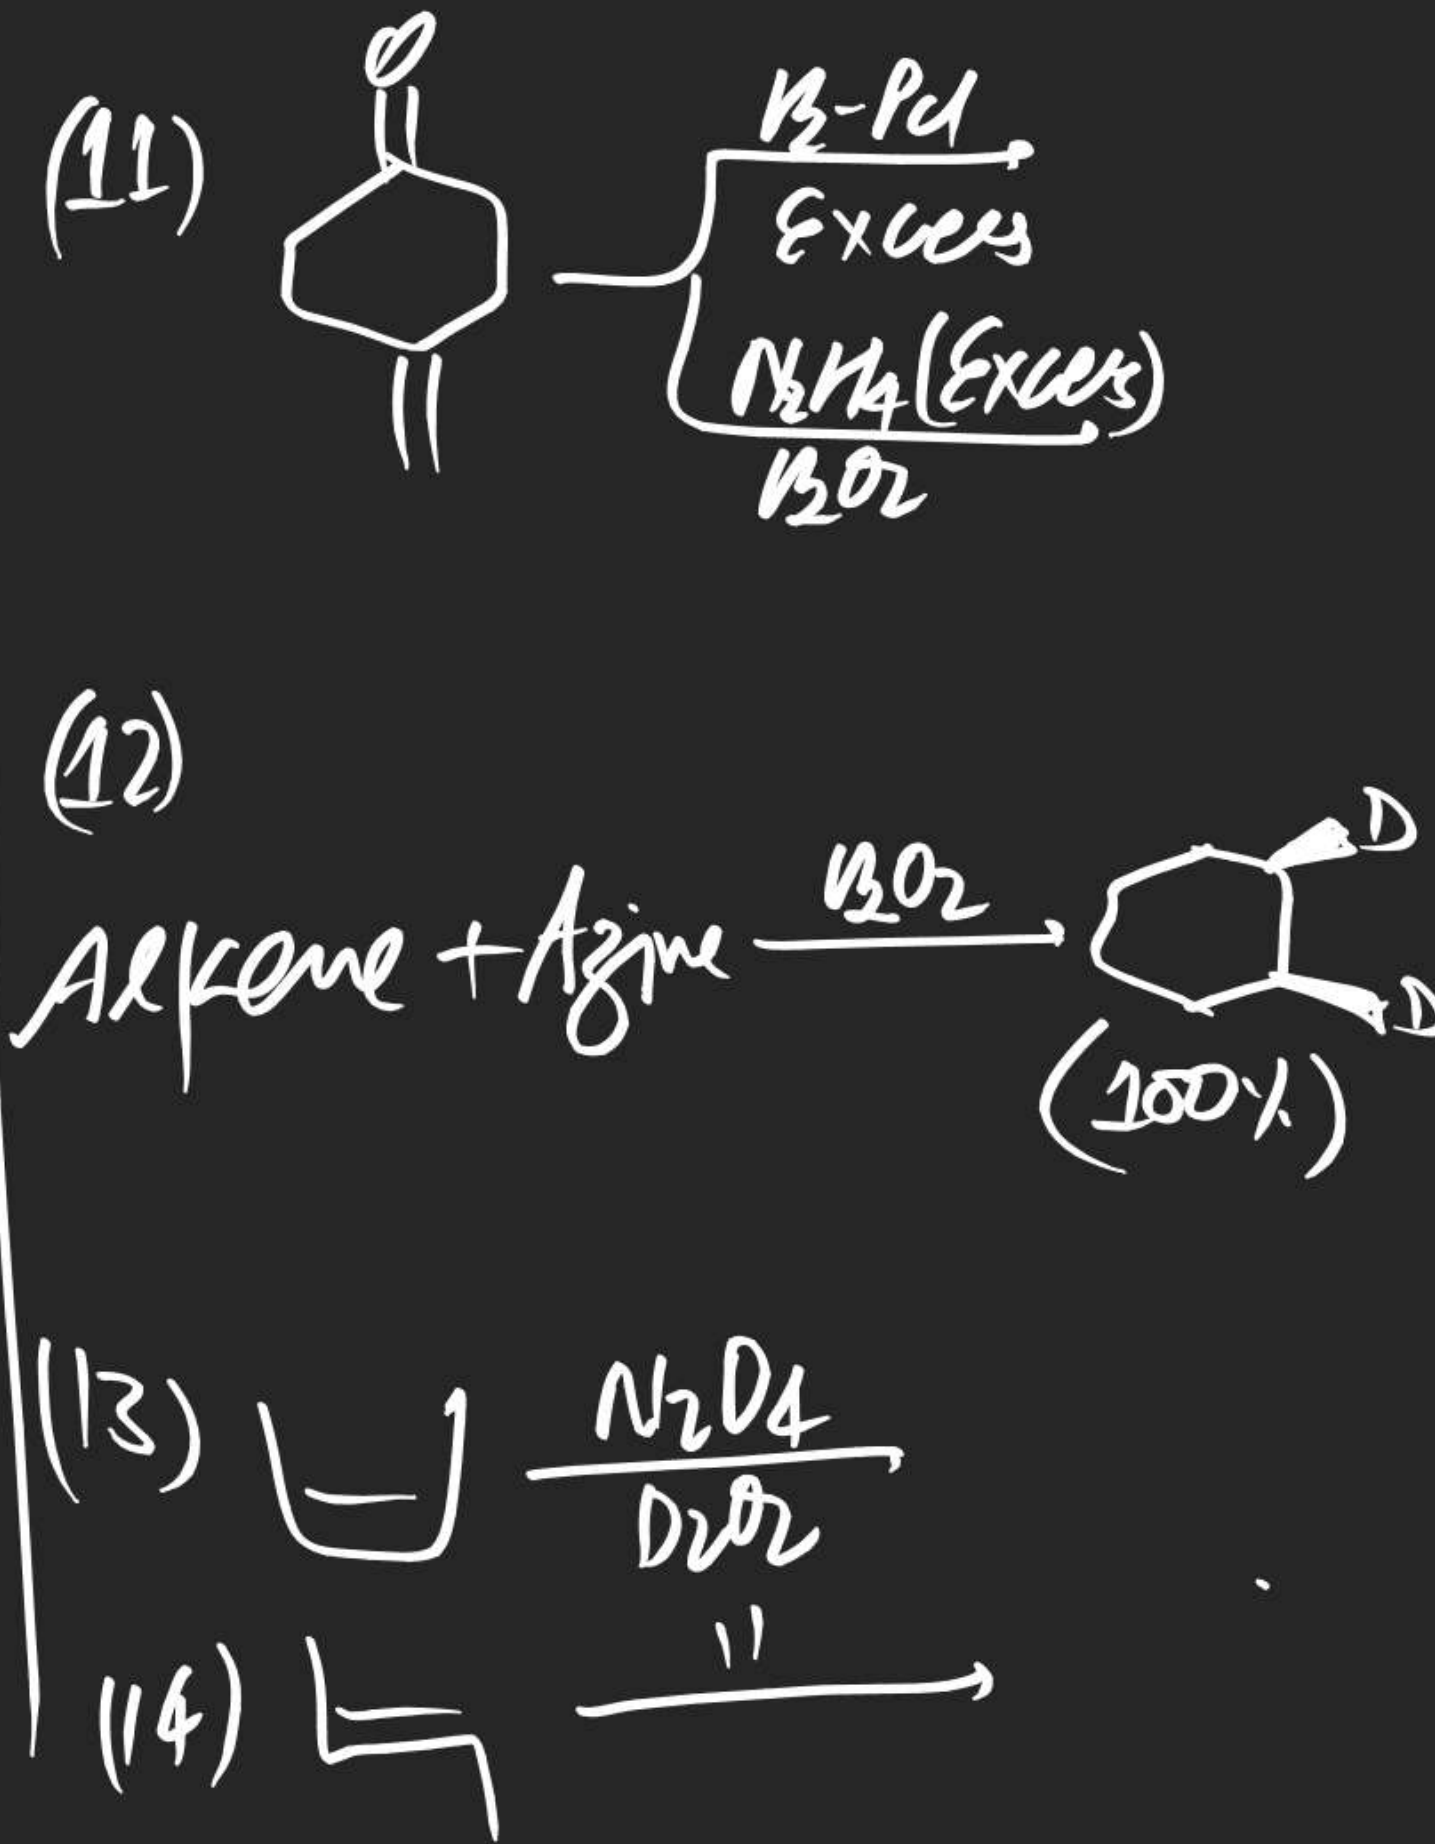 (11)
O
H2-Pd
Excess
N2H4 (Excess)
H2O2
(12)
Alkene + Azine
H2O2
D
D
(100%)
(13)
N2D4
D2O2
(14)
"